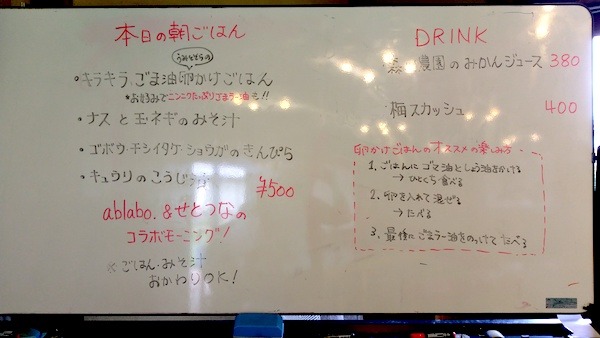 本日の朝ごはん
・キラキラごま油卵かけごはん
*お好みでニンニクたっぷりごまラー油も!!
・ナスと玉ネギのみそ汁
・ゴボウ・干シイタケ・ショウガのきんぴら
・キュウリのこうじ漬
¥500
ablabo.&せとつなの
コラボモーニング!
※ごはん・みそ汁
おかわりOK!
DRINK
農園のみかんジュース 380
梅スカッシュ 400
卵かけごはんのオススメの楽しみ方
1.ごはんにゴマ油としょう油をかける
→ひとくち食べる
2.卵を入れて混ぜる
→たべる
3.最後にごまラー油をのっけてたべる